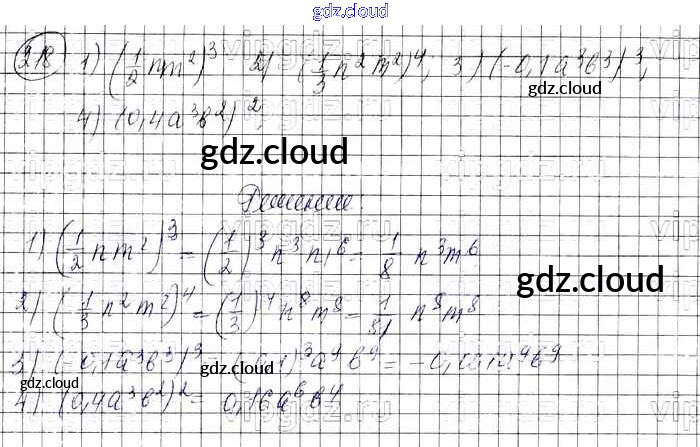 gdz.cloud
218 1) (1/2 nm²)³ 2) (1/3 n²m²)⁴; 3) (-0,1a³b³)³,
gdz.cloud
4) (0,4a³b²)²
gdz.cloud
Решение:
1) (1/2 nm²)³ = (1/2)³ n³m⁶ = 1/8 n³m⁶
gdz.cloud
2) (1/3 n²m²)⁴ = (1/3)⁴ n⁸m⁸ = 1/81 n⁸m⁸
3) (-0,1a³b³)³ = (-0,1)³a⁹b⁹ = -0,001a⁹b⁹
gdz.cloud
gdz.cloud
4) (0,4a³b²)² = 0,16a⁶b⁴